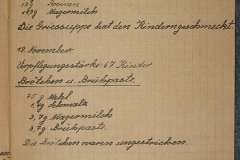 Tonnen
Magermilch
Die Griessuppe hat den Kindern geschmeckt.
19. November.
Verpflegungsstärke: 67 Kinder
Brötchen u. Brühpaste.
75 g Mehl
g Schmalz
3,7 g Magermilch
3,7 g Brühpast.
Die Brötchen waren ungestrichen.